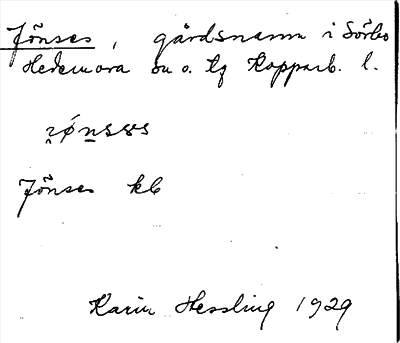 Jönses, gårdsnamn i Sörbo
Hedemora sn o. tg Kopparb. l.
Jönses kb
Karin Hessling 1929